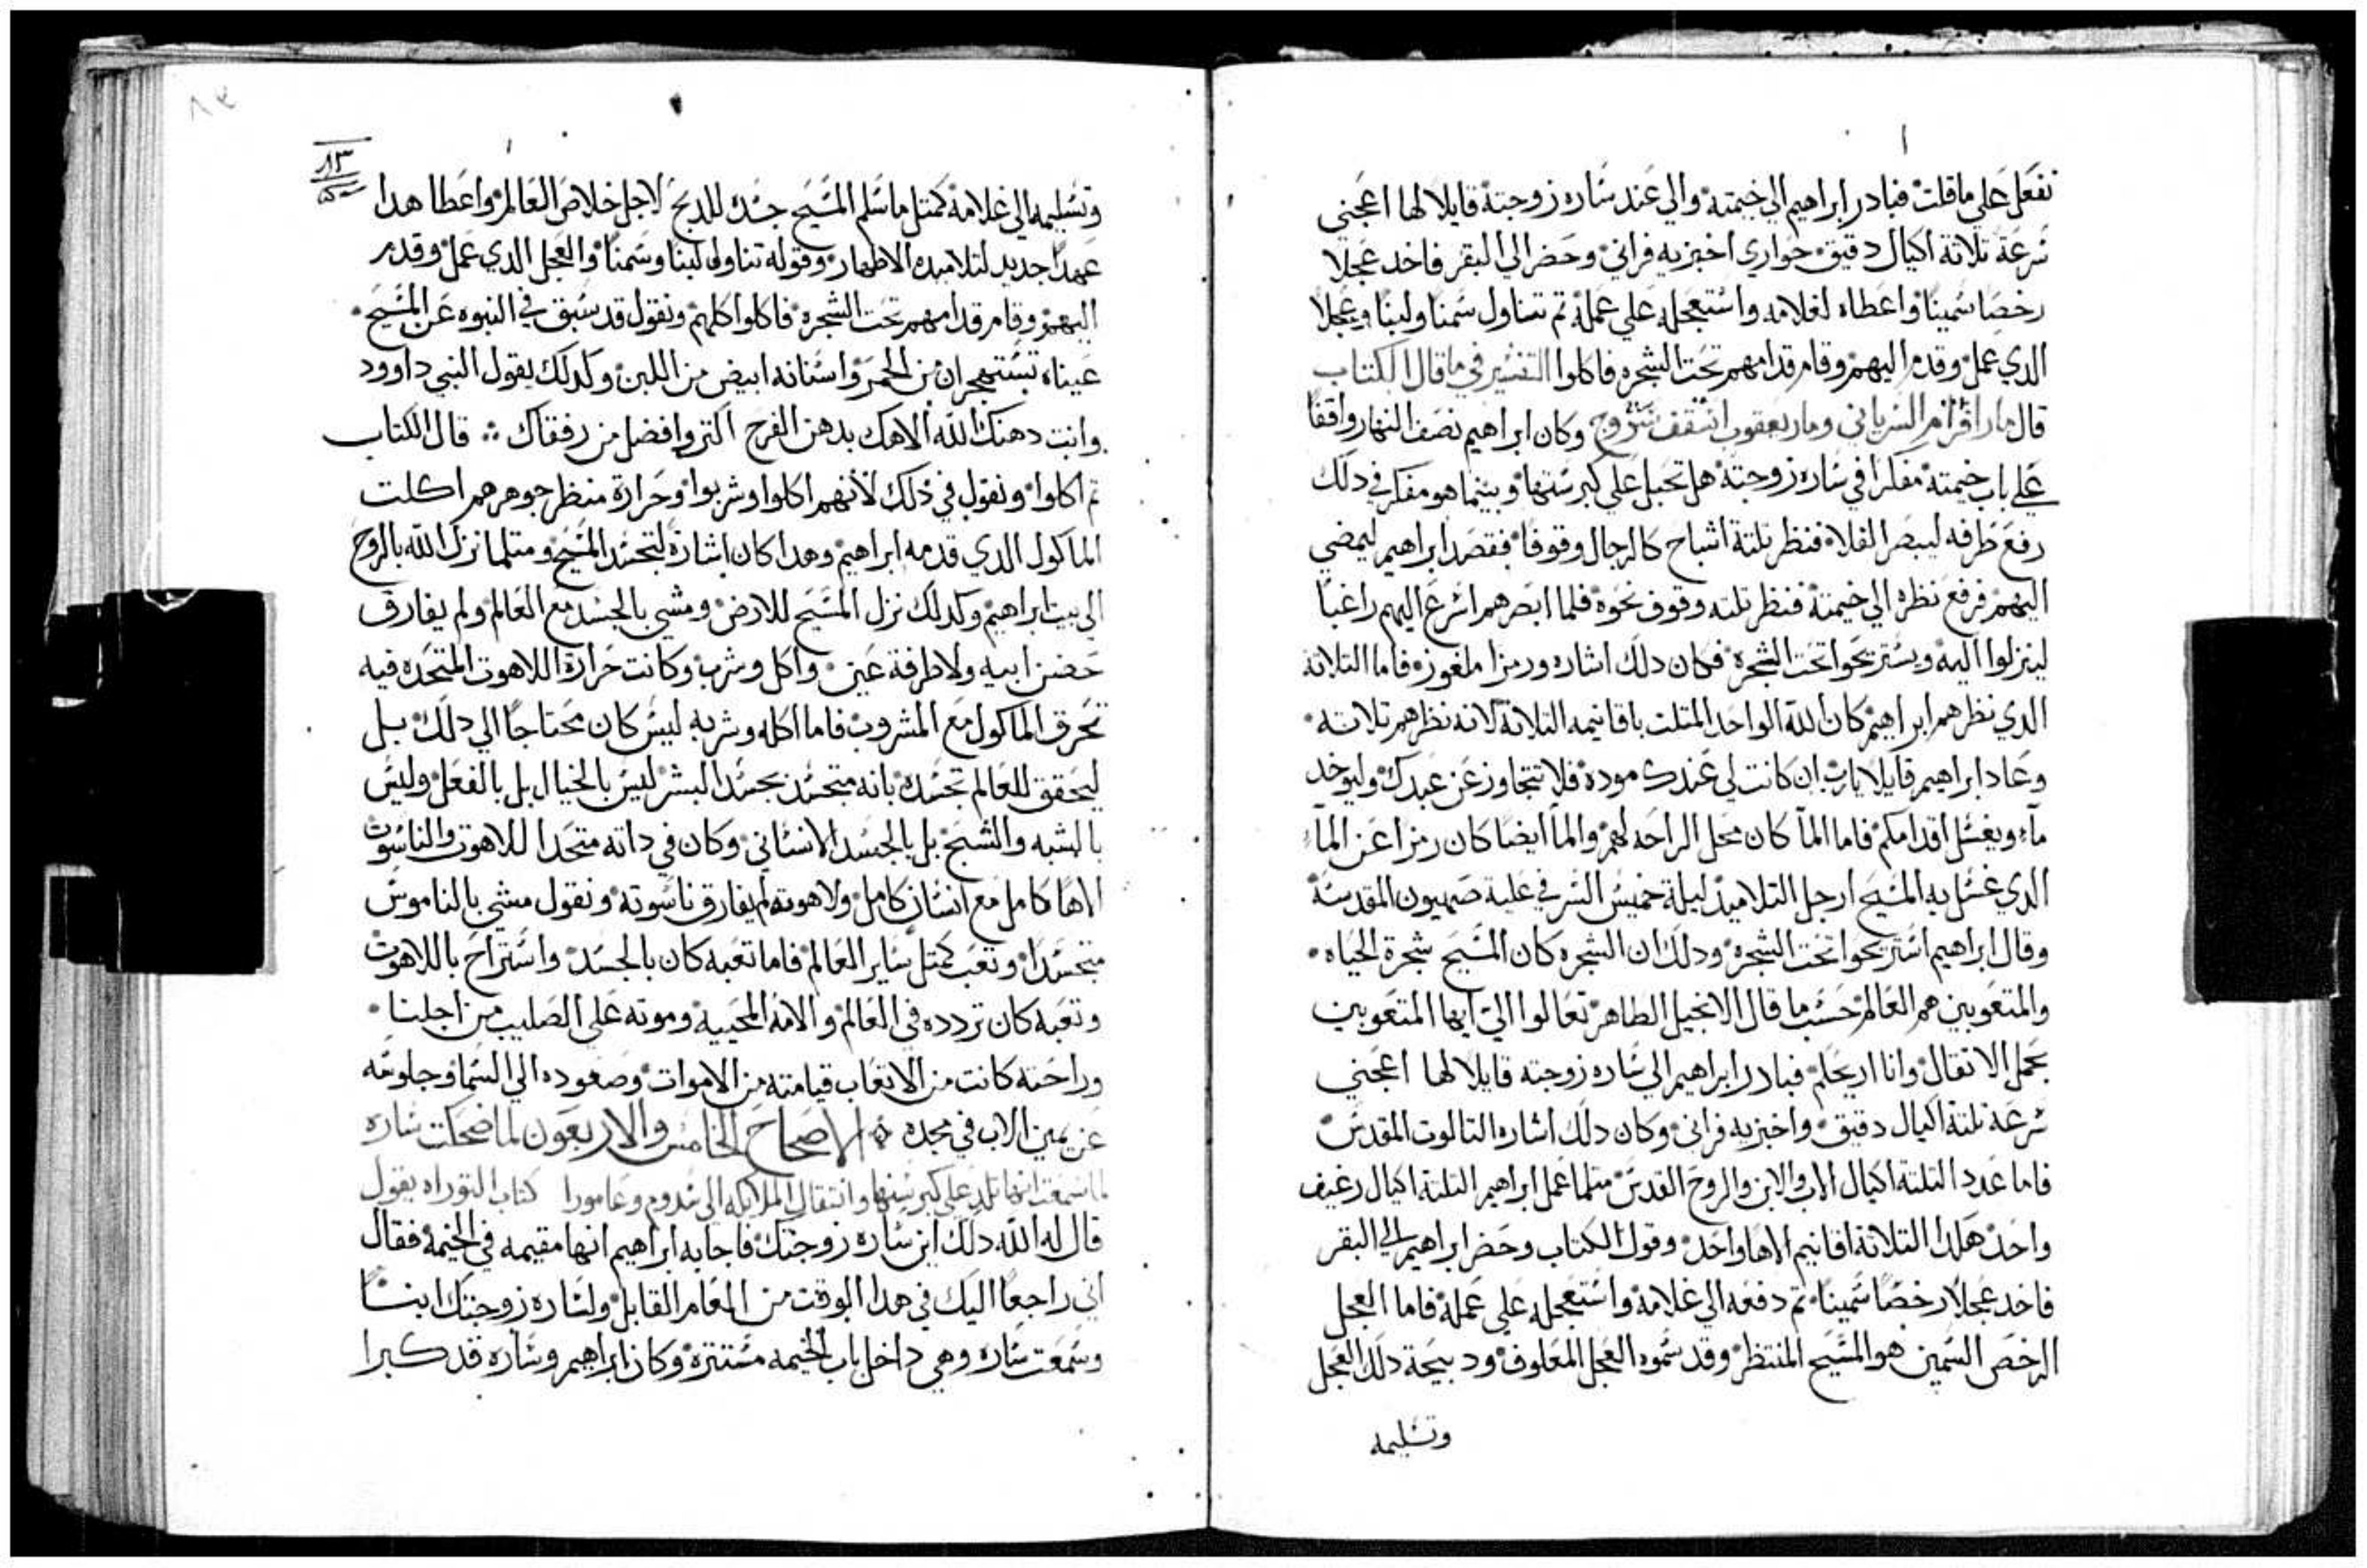 نفعل علي ما قلت فبادر ابراهيم الي خيمته والي عند ساره زوجته قايلا لها اعجني
سرعة تلاتة اكيال دقيق حواري اخبزيه فراني وحضر الي البقر فاخد عجلا
رخصا سمينا واعطاه لغلامه واستعجله علي عمله تم تناول سمنا ولبنا وعجلا
الدي عمل وقدم اليهم وقام قدامهم تحت الشجره فاكلوا التفسير في ما قال الكتاب
قال مار افرام السرياني ومار يعقوب اسقف سروج وكان ابراهيم نصف النهار واقفا
علي باب خيمته مفكرا في ساره زوجته هل تحبل علي كبر سنها وبينما هو مفكر في دلك
رفع طرفه ليبصر الفلاه فنظر تلتة اشباح كالرجال وقوفا فقصد ابراهيم ليمضي
اليهم فرفع نظره الي خيمته فنظر تلته وقوف نحوه فلما ابصرهم اسرع اليهم راغبا
لينزلوا اليه ويستريحوا تحت الشجره فكان دلك اشاره ورمزا ملغوز فاما التلاتة
الدي نظرهم ابراهيم كان الله الواحد المتلت باقانيمه التلاتة لانه نظرهم تلاته
وعاد ابراهيم قايلا يارب ان كانت لي عندك موده فلا تتجاوز عن عبدك وليوخد
مآء ويغسل اقدامكم فاما المآ كان محل الراحه لهم والمآ ايضا كان رمزا عن المآء
الدي غسل به المسيح ارجل التلاميد ليلة خميس السر في علية صهيون المقدسة
وقال ابراهيم استريحوا تحت الشجره ودلك ان الشجره كان المسيح شجرة الحياه
والمتعوبين هم العالم حسب ما قال الانجيل الطاهر تعالوا الي ايها المتعوبين
بحمل الاتقال وانا اريحكم فبادر ابراهيم الي ساره زوجته قايلا لها اعجني
سرعة تلتة اكيال دقيق واخبزيه فراني وكان دلك اشاره التالوت المقدس
فاما عدد التلتة اكيال الاب والابن والروح القدس متلما عمل ابراهيم التلتة اكيال رغيف
واحد هكدا التلاتة اقانيم الاها واحد وقول الكتاب وحضر ابراهيم الي البقر
فاخد عجلا رخصا سمينا تم دفعه الي غلامه واستعجله علي عمله فاما العجل
الرخص السمين هو المسيح المنتظر وقد سموه العجل المعلوف ودبيحة دلك العجل
وتسليمه
٨٣
٨٣
وتسليمه الي غلامه كمتل ما سلم المسيح جسده للدبح لاجل خلاص العالم واعطا هدا
عهدا جديد لتلاميده الاطهار وقوله تناول لبنا وسمنا والعجل الدي عمل وقدم
اليهم وقام قدامهم تحت الشجره فاكلوا كلهم ونقول قد سبق في النبوه عن المسيح
عيناه تستهجران من الخمر واسنانه ابيض من اللبن وكدلك يقول النبي داوود
وانت دهنك الله الاهك بدهن الفرح اكتر وافضل من رفقاك قال الكتاب
تم اكلوا ونقول في دلك لأنهم اكلوا وشربوا وحرارة منظر جوهرهم اكلت
الماكول الدي قدمه ابراهيم وهدا كان اشارة لتجسد المسيح ومتلما نزل الله بالروح
الي بيت ابراهيم وكدلك نزل المسيح للارض ومشي بالجسد مع العالم ولم يفارق
حضن ابيه ولا طرفة عين واكل وشرب وكانت حرارة اللاهوت المتحده فيه
تحرق الماكول مع المشروب فاما اكله وشربه ليس كان محتاجا الي دلك بل
ليحقق للعالم تجسده بانه متجسد بجسد البشر ليس بالخيال بل بالفعل وليس
بالشبه والشبح بل بالجسد الانساني وكان في داته متحدا للاهوت والناسوت
الاها كامل مع انسان كامل ولاهوته لم يفارق ناسوته ونقول مشي بالناموس
متجسدا وتعب كمتل ساير العالم فاما تعبه كان بالجسد واستراح باللاهوت
وتعبه كان تردده في العالم والامه المحييه وموته علي الصليب من اجلنا
وراحته كانت من الاتعاب قيامته من الاموات وصعوده الي السما وجلوسه
عن يمين الاب في مجده الاصحاح الخامس والاربعون لما ضحكت ساره
لما سمعت انها تلد علي كبر سنها وانتقال الملايكه الي سدوم وعامورا كتاب التوراه يقول
قال له الله دلك اين ساره زوجتك فاجابه ابراهيم انها مقيمه في الخيمة فقال
اني راجعا اليك في هدا الوقت من العام القابل ولساره زوجتك ابنا
وسمعت ساره وهي داخل باب الخيمه مستترة وكان ابراهيم وساره قد كبرا